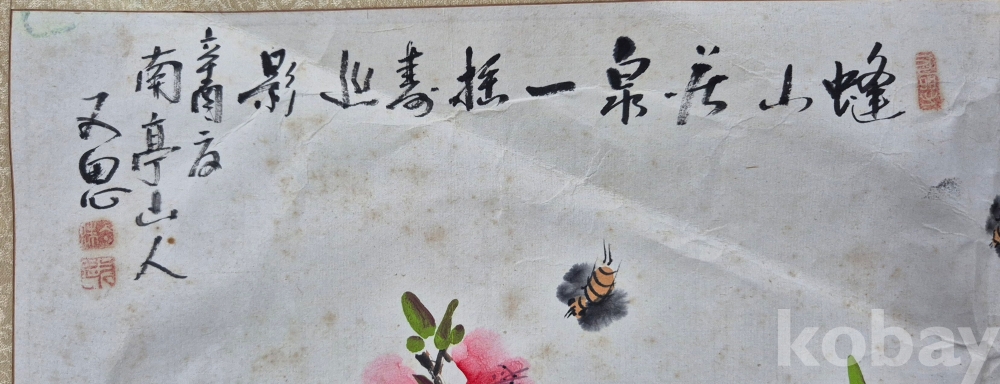 蜂山花泉一摇壽近影
辛酉夜
南亭山人
又思
kobay